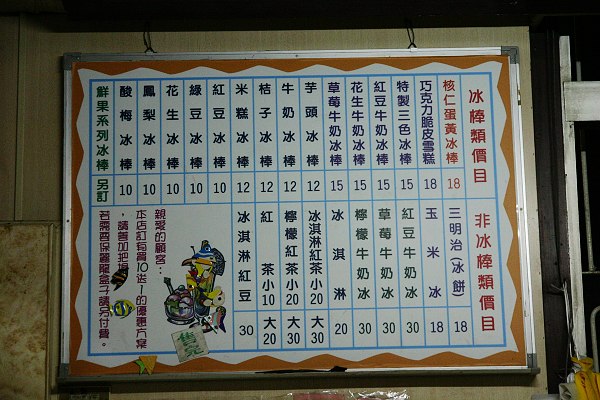 冰棒類價目
核仁蛋黃冰棒 18
巧克力脆皮雪糕 18
特製三色冰棒 15
紅豆牛奶冰棒 15
花生牛奶冰棒 15
草莓牛奶冰棒 15
芋頭冰棒 12
牛奶冰棒 12
桔子冰棒 12
米糕冰棒 12
紅豆冰棒 10
綠豆冰棒 10
花生冰棒 10
鳳梨冰棒 10
酸梅冰棒 10
鮮果系列冰棒 另訂
非冰棒類價目
三明治(冰餅) 18
玉米冰 18
紅豆牛奶冰 30
草莓牛奶冰 30
檸檬牛奶冰 30
冰淇淋 20
冰淇淋紅茶小20 大30
檸檬紅茶小20 大30
紅茶小10 大20
冰淇淋紅豆 30
親愛的顧客：
本店訂有買10送1的優惠方案
，請善加把握
若需要保麗龍盒子請另付費。
售完